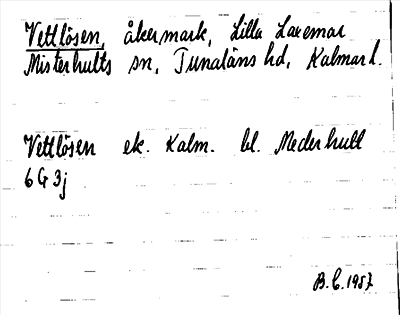 Vettlösen, åkermark, Lilla Laxemar
Misterhults sn, Tunaläns hd, Kalmar l.
Vettlösen ek. Kalm. bl. Mederhult
6G3j
B.C. 1957